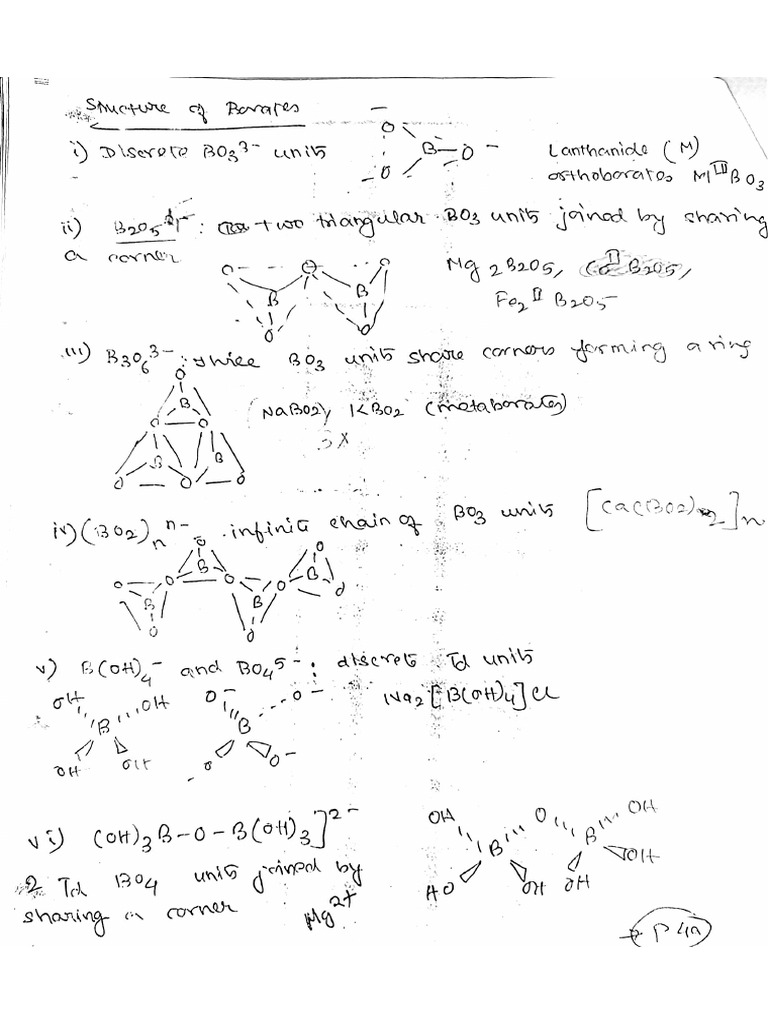 Structure of Borates
i) Discrete BO3 3- units
Lanthanide (M)
orthoborates M III BO3
ii) B2O5 4- : two triangular BO3 units joined by sharing
a corner
Mg2B2O5, Co II B2O5,
Fe2 II B2O5
iii) B3O6 3- : three BO3 units share corners forming a ring
NaBO2, KBO2 (metaborates)
3x
iv) (BO2)n n- infinite chain of BO3 units [Ca(BO2)2]n
v) B(OH)4- and BO4 5- : discrete Td units
Na2[B(OH)4]Cl
vi) (OH)3B-O-B(OH)3]2-
2 Td BO4 units joined by
sharing a corner Mg2+